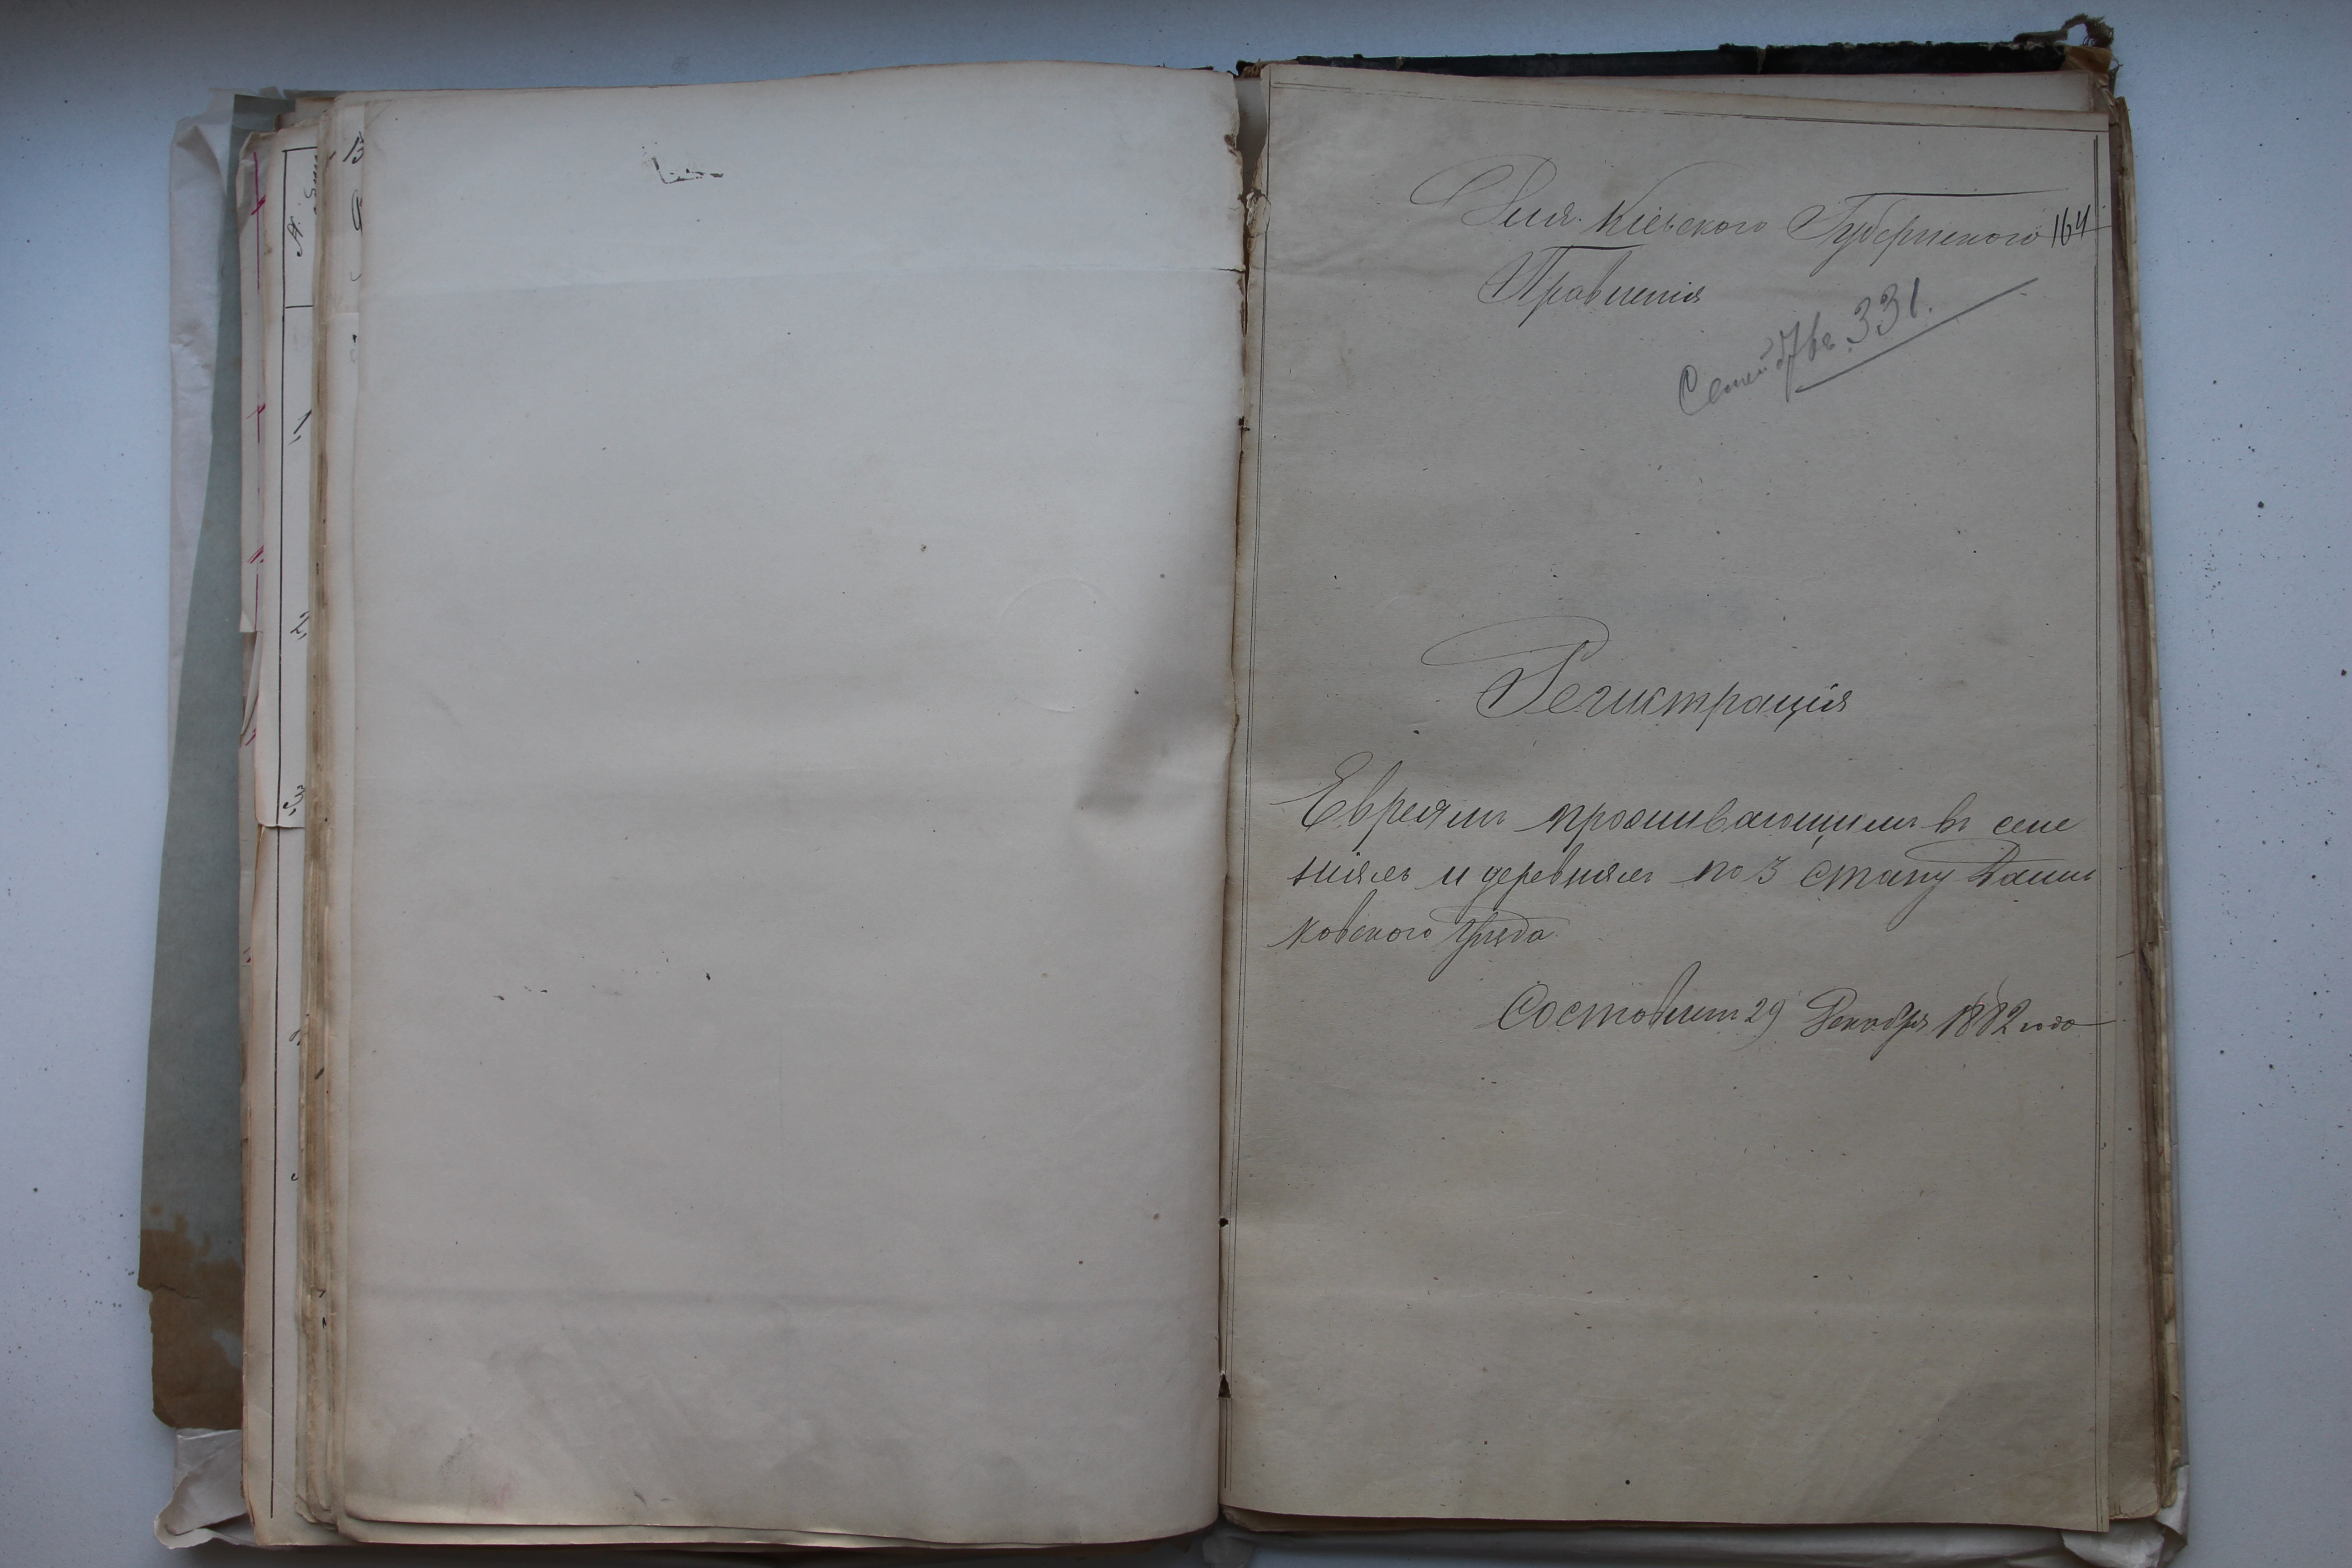 Для Кіевского Губернского 164
Правленія
Семействъ 331.
Регистрація
Евреямъ проживающимъ въ селе
ніяхъ и деревняхъ по 3 стану
ковского уѣзда
Составлен 29 Декабря 1882 года